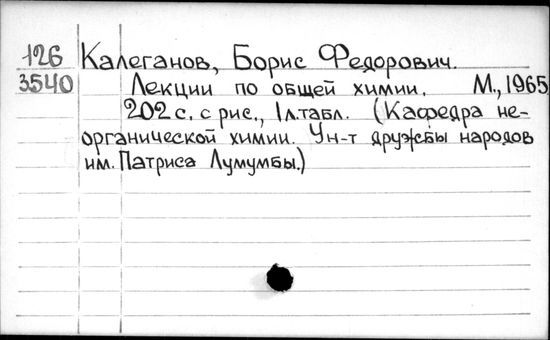 126 Калеганов, Борис Федорович.
3540 Лекции по общей химии. М., 1965
202 с. с рис., 1 л. табл. (Кафедра не-
органической химии. Ун-т дружбы народов
им. Патриса Лумумбы.)